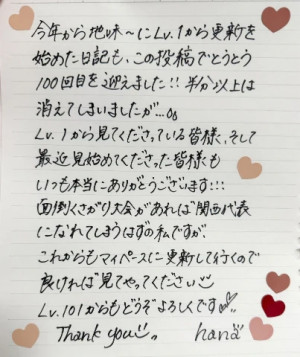 今年から地味〜にLv.1から更新を
始めた日記も、この投稿でとうとう
100回目を迎えました!! 半分以上は
消えてしまいましたが...。。
Lv.1から見てくださっている皆様、そして
最近見始めてくださった皆様も
いつも本当にありがとうございます!!!
面倒くさがり大会があれば関西代表
になれてしまうはずの私ですが、
これからもマイペースに更新して行くので
良ければ見てやってください
Lv.101からもどうぞよろしくです
Thank you hana